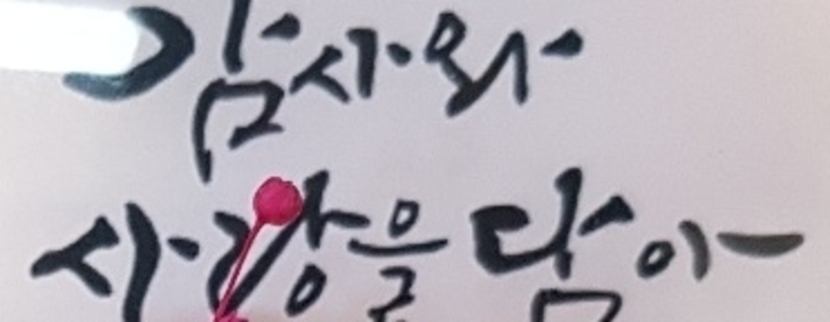 감사와
사랑을 담아